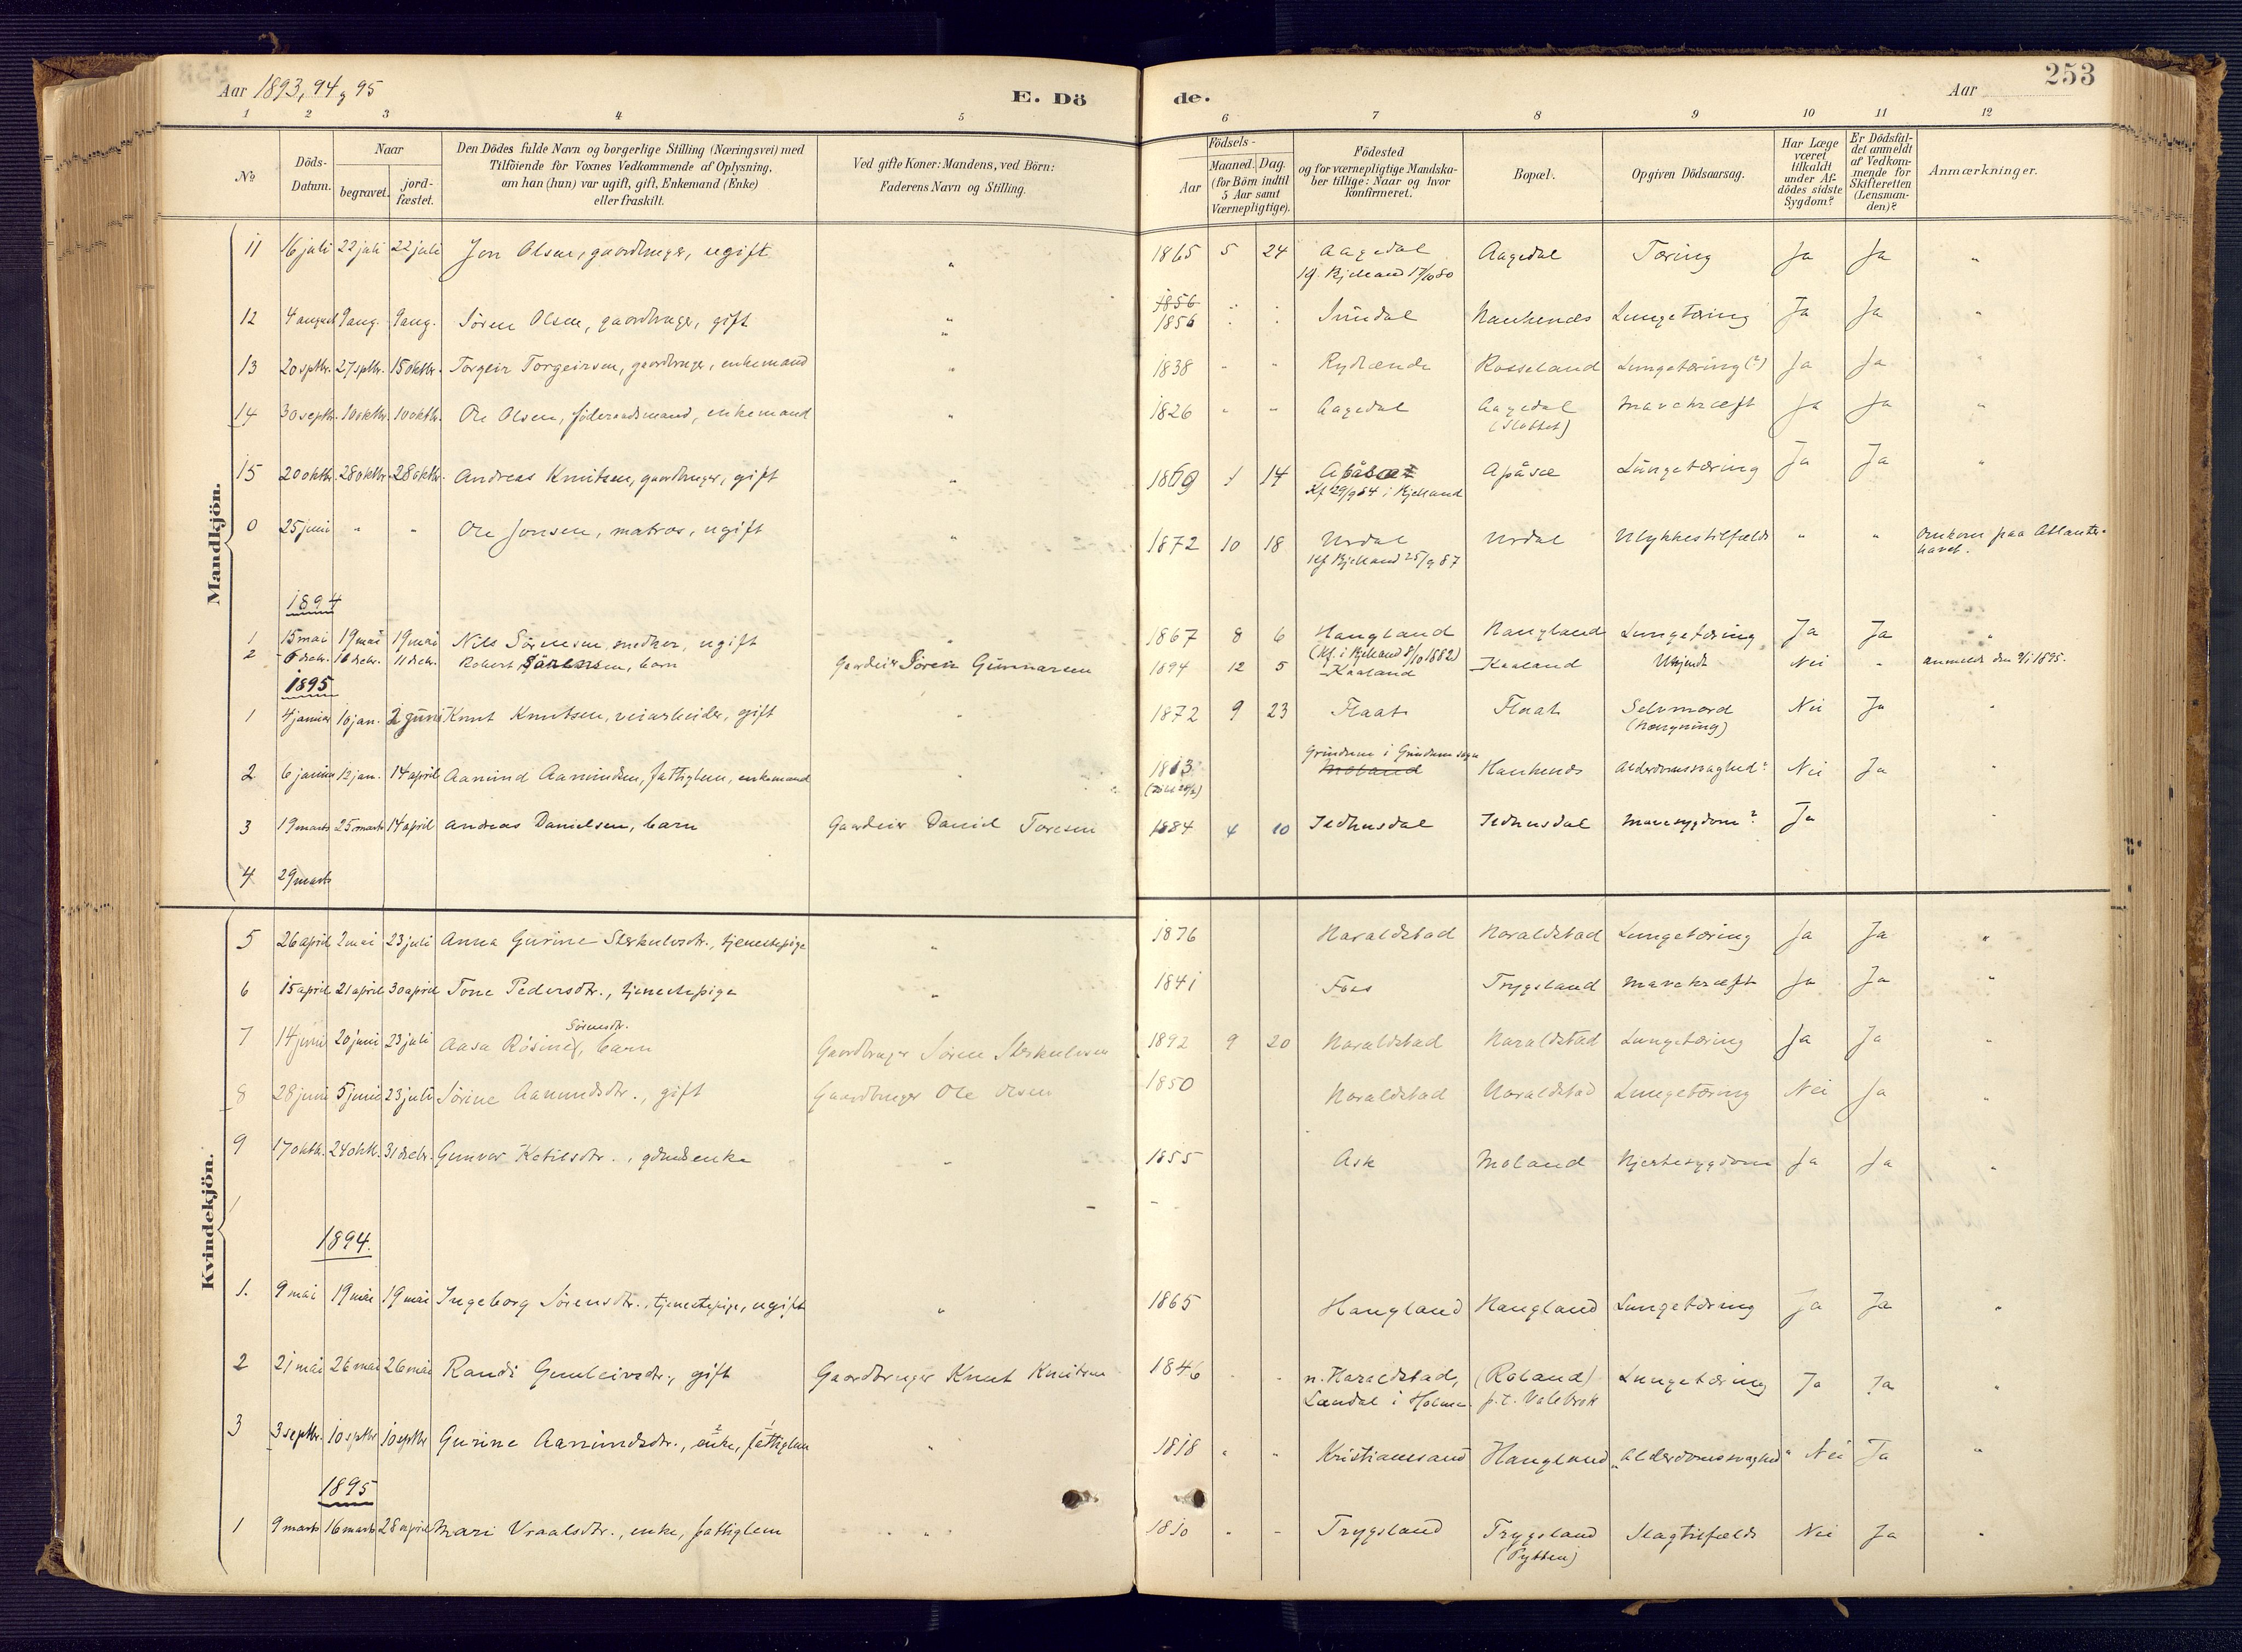 Aar 1893, 94, 95
E. Dö
de.
Aar
253
1 2 3 4 5 6 7 8 9 10 11 12
No
Döds-Datum.
Naar
begravet.
jord-fæstet.
Den Dödes fulde Navn og borgerlige Stilling (Næringsvei) med
Tilföiende for Voxnes Vedkommende af Oplysning,
om han (hun) var ugift, gift, Enkemand (Enke)
eller fraskilt.
Ved gifte Koner: Mandens, ved Börn:
Faderens Navn og Stilling.
Födsels-
Aar
Maaned. Dag.
(for Börn indtil
5 Aar samt
Værnepligtige).
Födested
og for værnepligtige Mandska-
ber tillige: Naar og hvor
konfirmeret.
Bopæl.
Opgiven Dödsaarsag.
Har Læge
været
tilkaldt
under Af-
dödes sidste
Sygdom?
Er Dödsfal-
det anmeldt
af Vedkom-
mende for
Skifteretten
(Lensman-
den)?
Anmærkninger.
Mandkjön.
11 16 juli 22 juli 22 juli Jon Olsen, gaardbruger, ugift " 1865 5 24 Aagedal Aagedal Tæring Ja Ja "
Kf. Bjelland 17/10 80
1856
12 4 august 9 aug. 9 aug. Sören Olsen, gaardbruger, gift " 1856 Lungetæring Ja Ja "
13 20 sptbr. 27 sptbr. 15 oktbr. Torgeir Torgeirsen, gaardbruger, enkemand " 1838 " " Rosseland Lungetæring (?) Ja Ja "
14 30 septbr. 10 oktbr. 10 oktbr. Ole Olsen, föderaadsmand, enkemand " 1826 " " Aagedal Aagedal Mavekræft Ja Ja "
(Slottet)
15 20 oktbr. 28 oktbr. 28 oktbr. Andreas Knutsen, gaardbruger, gift " 1869 1 14 Apåsæ Lungetæring Ja Ja "
Kf 29/9 84 i Bjelland
0 25 juni " " Ole Jonsen, matros, ugift " 1872 10 18 Urdal Urdal Ulykkestilfælde " " Omkom paa Atlanter-
havet.
Kf Bjelland 25/9 87
1894
1 15 mai 19 mai 19 mai Nils Sörensen, snedker, ugift " 1867 8 6 Haugland Haugland Lungetæring Ja Ja "
(Kf. i Bjelland 8/10 1882)
2 6 decbr. 16 decbr. 11 decbr. Robert Sörensen, barn Gaardeier Sören Gunnarsen 1894 12 5 Kaaland Kaaland Ukjendt Nei " anmeldt den 9/1 1895.
1895
1 4 januar 10 jan. 2 juni Knut Knutsen, veiarbeider, gift " 1872 9 23 Flaat Flaat Selvmord Nei Ja "
(hængning)
Grindum i Grindum sogn
2 6 januar 12 jan. 14 april Aanund Aanundsen, fattiglem, enkemand " 1813 Moland Alderdomssvaghed? Nei Ja "
3 19 marts 25 marts 14 april Andreas Danielsen, barn Gaardeier Daniel Toresen 1884 4 10 Mavesygdom? Ja "
4 29 marts
Kvindekjön.
5 26 april 2 mai 23 juli Anna Gurine Sterkulvsdtr., tjenestepige " 1876 Haraldstad Haraldstad Lungetæring Ja Ja "
6 15 april 21 april 30 april Tone Pedersdtr., tjenestepige " 1841 Foss Trygsland Mavekræft Ja Ja "
Sörensdtr.
7 14 juni 20 juni 23 juli Aasa Rosine, barn Gaardbruger Sören Sterkulvsen 1892 9 20 Haraldstad Haraldstad Lungetæring Ja Ja "
8 28 juni 5 juni 23 juli Sörine Aanundsdtr., gift Gaardbruger Ole Olsen 1850 Haraldstad Haraldstad Lungetæring Nei Ja "
9 17 oktbr. 24 oktbr. 31 decbr. Gunvor Ketilsdtr., gdmdsenke " 1855 Ask Moland Hjertesygdom Ja Ja "
1894.
1. 9 mai 19 mai 19 mai Ingeborg Sörensdtr., tjenestepige, ugift " 1865 Haugland Haugland Lungetæring Ja Ja "
2 21 mai 26 mai 26 mai Randi Gunleivsdtr., gift Gaardbruger Knut Knutsen 1846 " " n. Haraldstad, (Roland) Lungetæring Ja Ja "
Laudal i Holme p.t. Valebrok
3 3 septbr. 10 sptbr 10 sptbr Gurine Aanundsdtr., enke, fattiglem " 1818 " " Kristianssand Haugland "Alderdomssvaghed" Nei Ja "
1895
1 9 marts 16 marts 28 april Mari Vraalsdtr., enke, fattiglem " 1810 " " Trygsland Trygsland Slagtilfælde Nei Ja "
(Pytten)